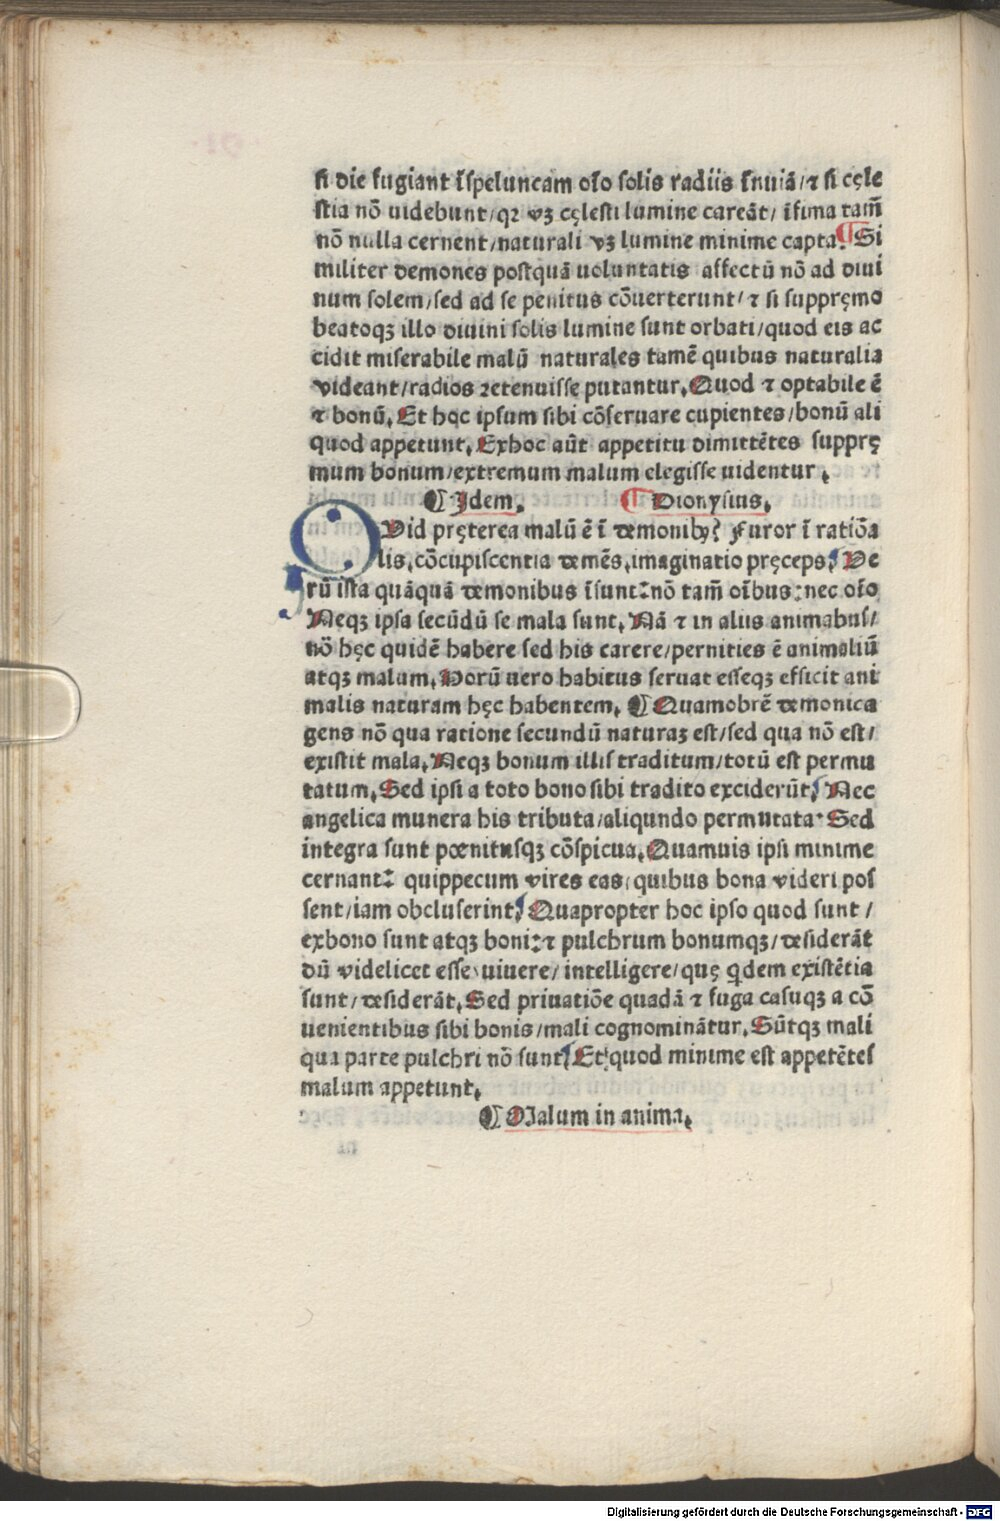 si die fugiant ĩspeluncam oĩo solis radiis ĩnuiã/⁊ si cęle
stia nõ uidebunt/qꝛ vꝫ cęlesti lumine careãt/ ĩfima tam̃
nõ nulla cernent/naturali vꝫ lumine minime capta. ¶ Si
militer demones postquã uoluntatis affectũ nõ ad diui
num solem/sed ad se penitus cõuerterunt/⁊ si supręmo
beatoqꝫ illo diuini solis lumine sunt orbati/quod eis ac
cidit miserabile malũ naturales tamẽ quibus naturalia
videant/radios ꝛetenuisse putantur. Quod ⁊ optabile ẽ
⁊ bonũ. Et hoc ipsum sibi cõseruare cupientes/bonũ ali
quod appetunt. Exhoc aũt appetitu dimittẽtes supprę
mum bonum/extremum malum elegisse uidentur.
¶ Idem. ¶ Dionysius.
QVid pręterea malũ ẽ ĩ demonibꝰ? Furor ĩ ratiõa
lis, cõcupiscentia demẽs, imaginatio pręceps. Ve
rũ ista quãquã demonibus ĩsunt: nõ tam̃ oĩbus: nec oĩo
Neqꝫ ipsa secũdũ se mala sunt. Nã ⁊ in aliis animabus/
nõ hęc quidẽ habere sed his carere/pernities ẽ animaliũ
atqꝫ malum. Horũ uero habitus seruat esseqꝫ efficit ani
malis naturam hęc habentem. ¶ Quamobrẽ demonica
gens nõ qua ratione secundũ naturaꝫ est/sed qua nõ est/
existit mala. Neqꝫ bonum illis traditum/totũ est permu
tatum. Sed ipsi a toto bono sibi tradito exciderũt. Nec
angelica munera his tributa/aliqundo permutata. Sed
integra sunt pœnitusqꝫ cõspicua. Quamuis ipsi minime
cernant: quippecum vires eas/quibus bona videri pos
sent/iam obcluserint. Quapropter hoc ipso quod sunt/
exbono sunt atqꝫ boni: ⁊ pulchrum bonumqꝫ/desiderãt
dũ videlicet esse/uiuere/intelligere/quę qͥdem existẽtia
sunt/desiderãt. Sed priuatiõe quadã ⁊ fuga casuqꝫ a cõ
uenientibus sibi bonis/mali cognominãtur. Sũtqꝫ mali
qua parte pulchri nõ sunt. Et quod minime est appetẽtes
malum appetunt.
¶ Malum in anima.
Digitalisierung gefördert durch die Deutsche Forschungsgemeinschaft - DFG